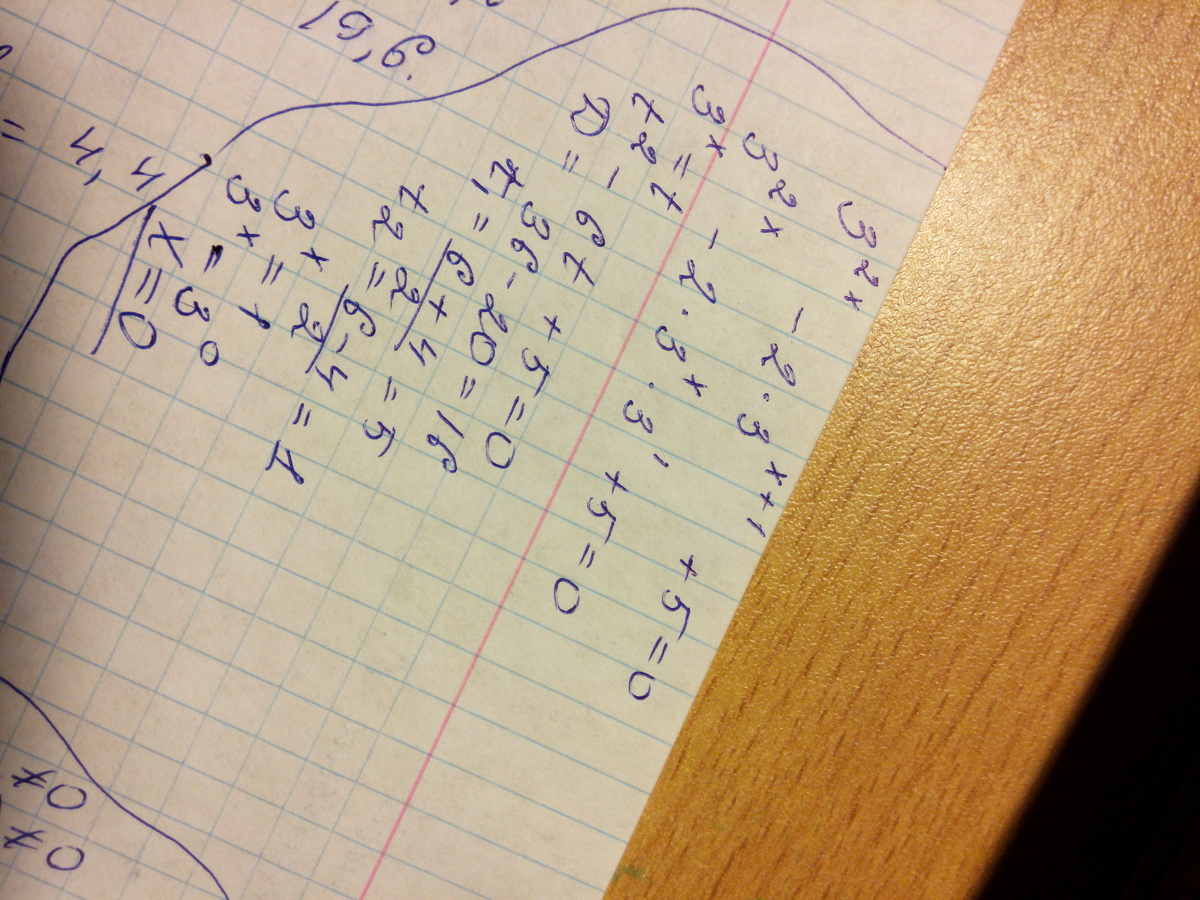 3^{2x} - 2·3^{x+1} + 5 = 0
3^{2x} - 2·3^x·3^1 + 5 = 0
3^x = t
t^2 - 6t + 5 = 0
D = 36 - 20 = 16
t_1 = \frac{6+4}{2} = 5
t_2 = \frac{6-4}{2} = 1
3^x = 1
3^x = 3^0
x = 0